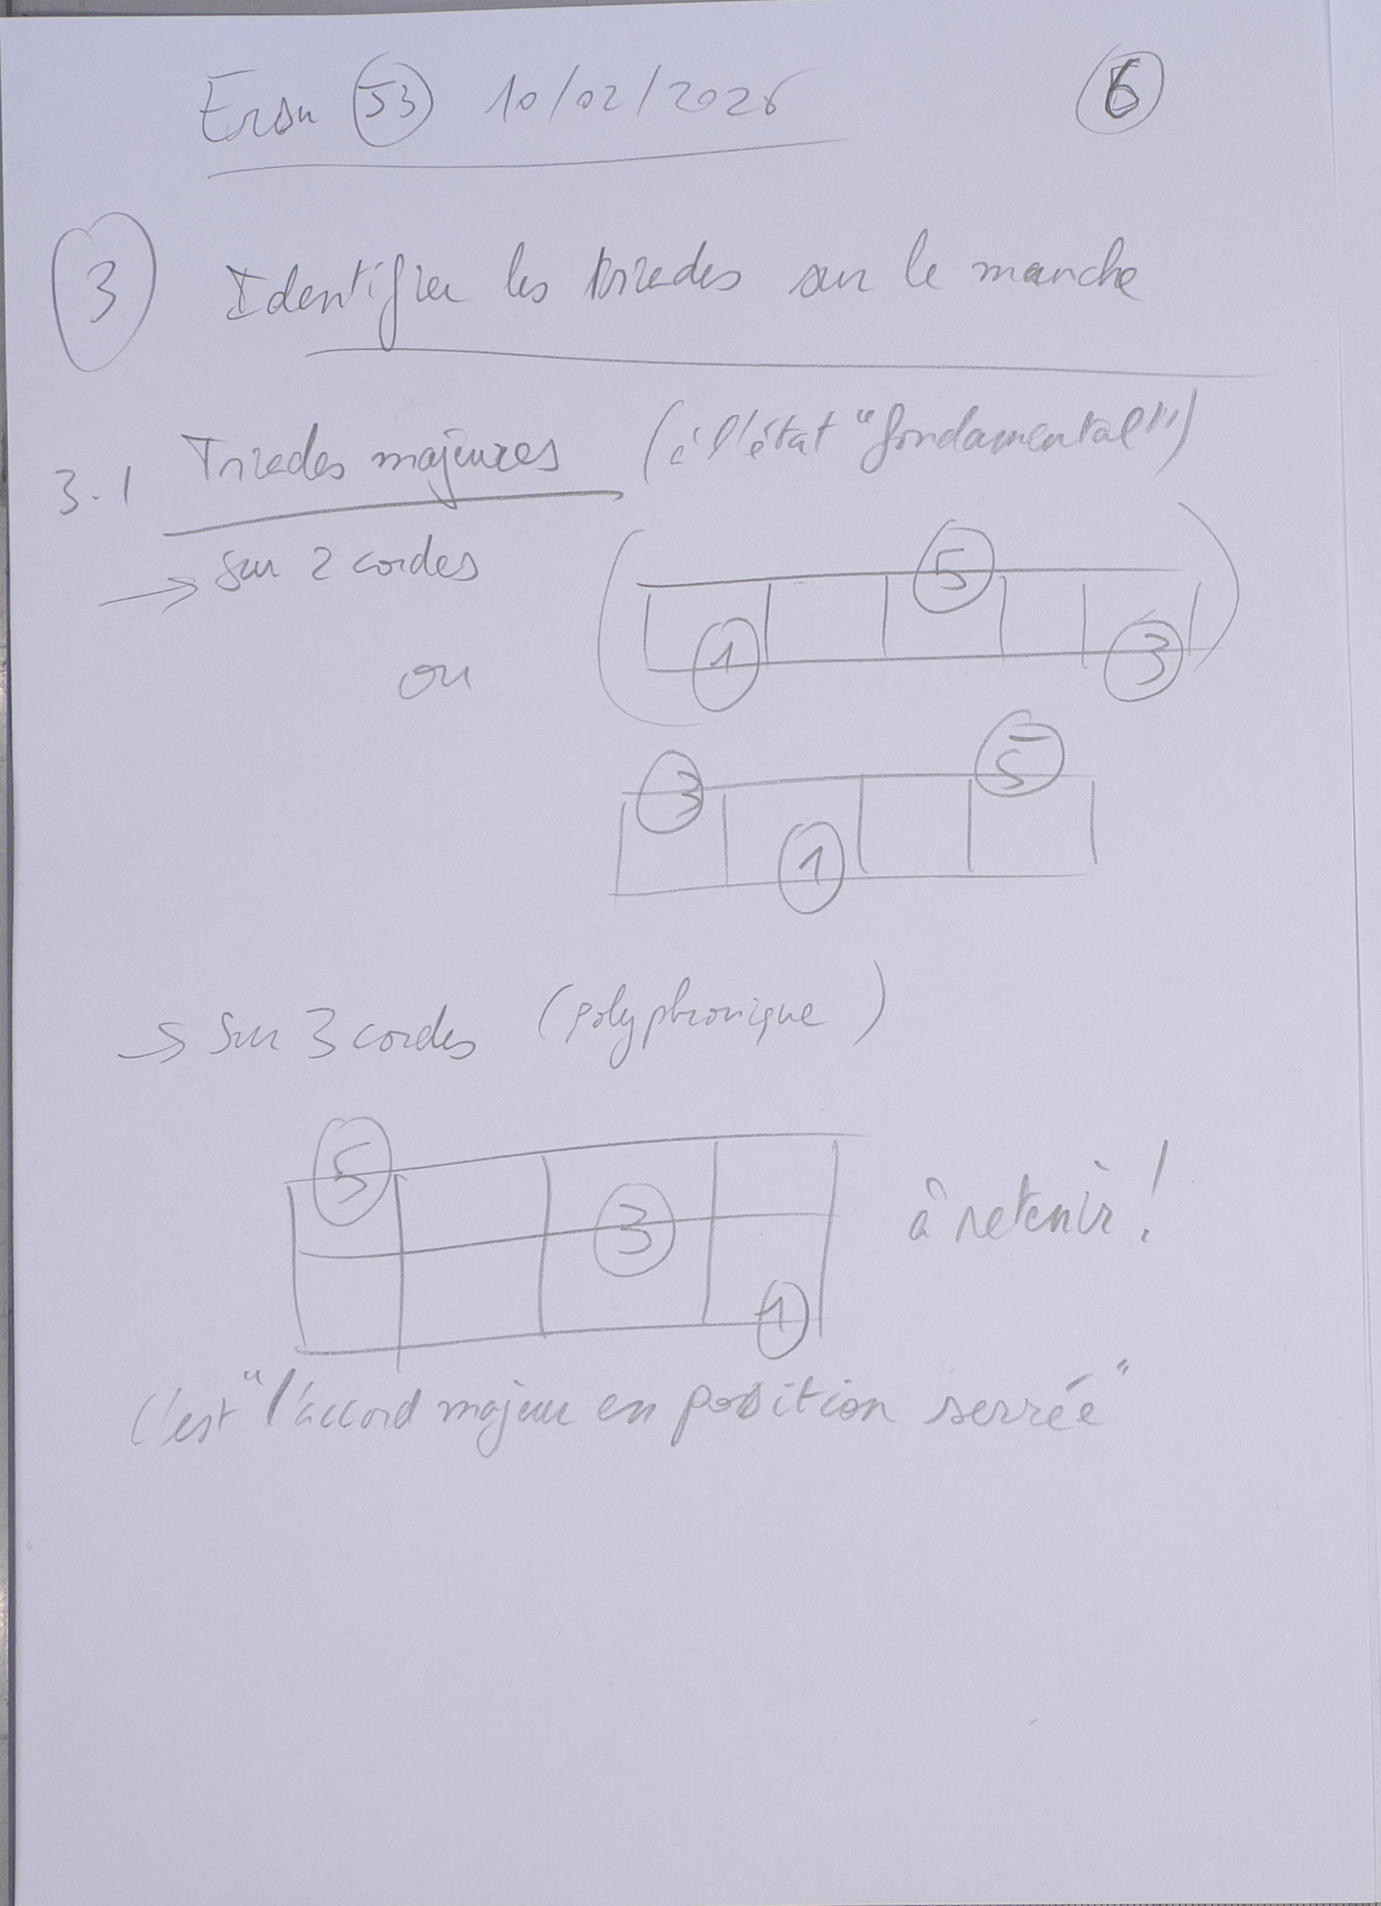 Ersu 53 10/02/2026 6
3 Identifier les triades sur le manche
3.1 Triades majeures (à l'état "fondamental")
→ sur 2 cordes
5
1 3
ou
3 5
1
→ Sur 3 cordes (polyphonique)
5
3 à retenir !
1
C'est "l'accord majeur en position serrée"